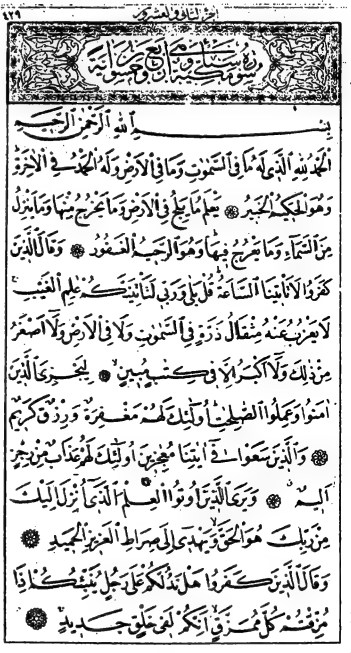 ٤٢٩ الجزء الثانى والعشرون
سورة سبأ مكية وهى اربع وخمسون اية
بِسْمِ اللهِ الرَّحْمٰنِ الرَّحِيمِ
اَلْحَمْدُ لِلّٰهِ الَّذِى لَهُ مَا فِى السَّمٰوَاتِ وَمَا فِى الْاَرْضِ وَلَهُ الْحَمْدُ فِى الْاٰخِرَةِ
وَهُوَ الْحَكِيمُ الْخَبِيرُ ۞ يَعْلَمُ مَا يَلِجُ فِى الْاَرْضِ وَمَا يَخْرُجُ مِنْهَا وَمَا يَنْزِلُ
مِنَ السَّمَاءِ وَمَا يَعْرُجُ فِيهَا وَهُوَ الرَّحِيمُ الْغَفُورُ ۞ وَقَالَ الَّذِينَ
كَفَرُوا لَا تَأْتِينَا السَّاعَةُ قُلْ بَلٰى وَرَبِّى لَتَأْتِيَنَّكُمْ عَالِمِ الْغَيْبِ
لَا يَعْزُبُ عَنْهُ مِثْقَالُ ذَرَّةٍ فِى السَّمٰوَاتِ وَلَا فِى الْاَرْضِ وَلَا اَصْغَرُ
مِنْ ذٰلِكَ وَلَا اَكْبَرُ اِلَّا فِى كِتَابٍ مُبِينٍ ۞ لِيَجْزِىَ الَّذِينَ
اٰمَنُوا وَعَمِلُوا الصَّالِحَاتِ اُولٰئِكَ لَهُمْ مَغْفِرَةٌ وَرِزْقٌ كَرِيمٌ
۞ وَالَّذِينَ سَعَوْا فِى اٰيَاتِنَا مُعَاجِزِينَ اُولٰئِكَ لَهُمْ عَذَابٌ مِنْ رِجْزٍ
اَلِيمٌ ۞ وَيَرَى الَّذِينَ اُوتُوا الْعِلْمَ الَّذِى اُنْزِلَ اِلَيْكَ
مِنْ رَبِّكَ هُوَ الْحَقَّ وَيَهْدِى اِلٰى صِرَاطِ الْعَزِيزِ الْحَمِيدِ ۞
وَقَالَ الَّذِينَ كَفَرُوا هَلْ نَدُلُّكُمْ عَلٰى رَجُلٍ يُنَبِّئُكُمْ اِذَا
مُزِّقْتُمْ كُلَّ مُمَزَّقٍ اِنَّكُمْ لَفِى خَلْقٍ جَدِيدٍ ۞